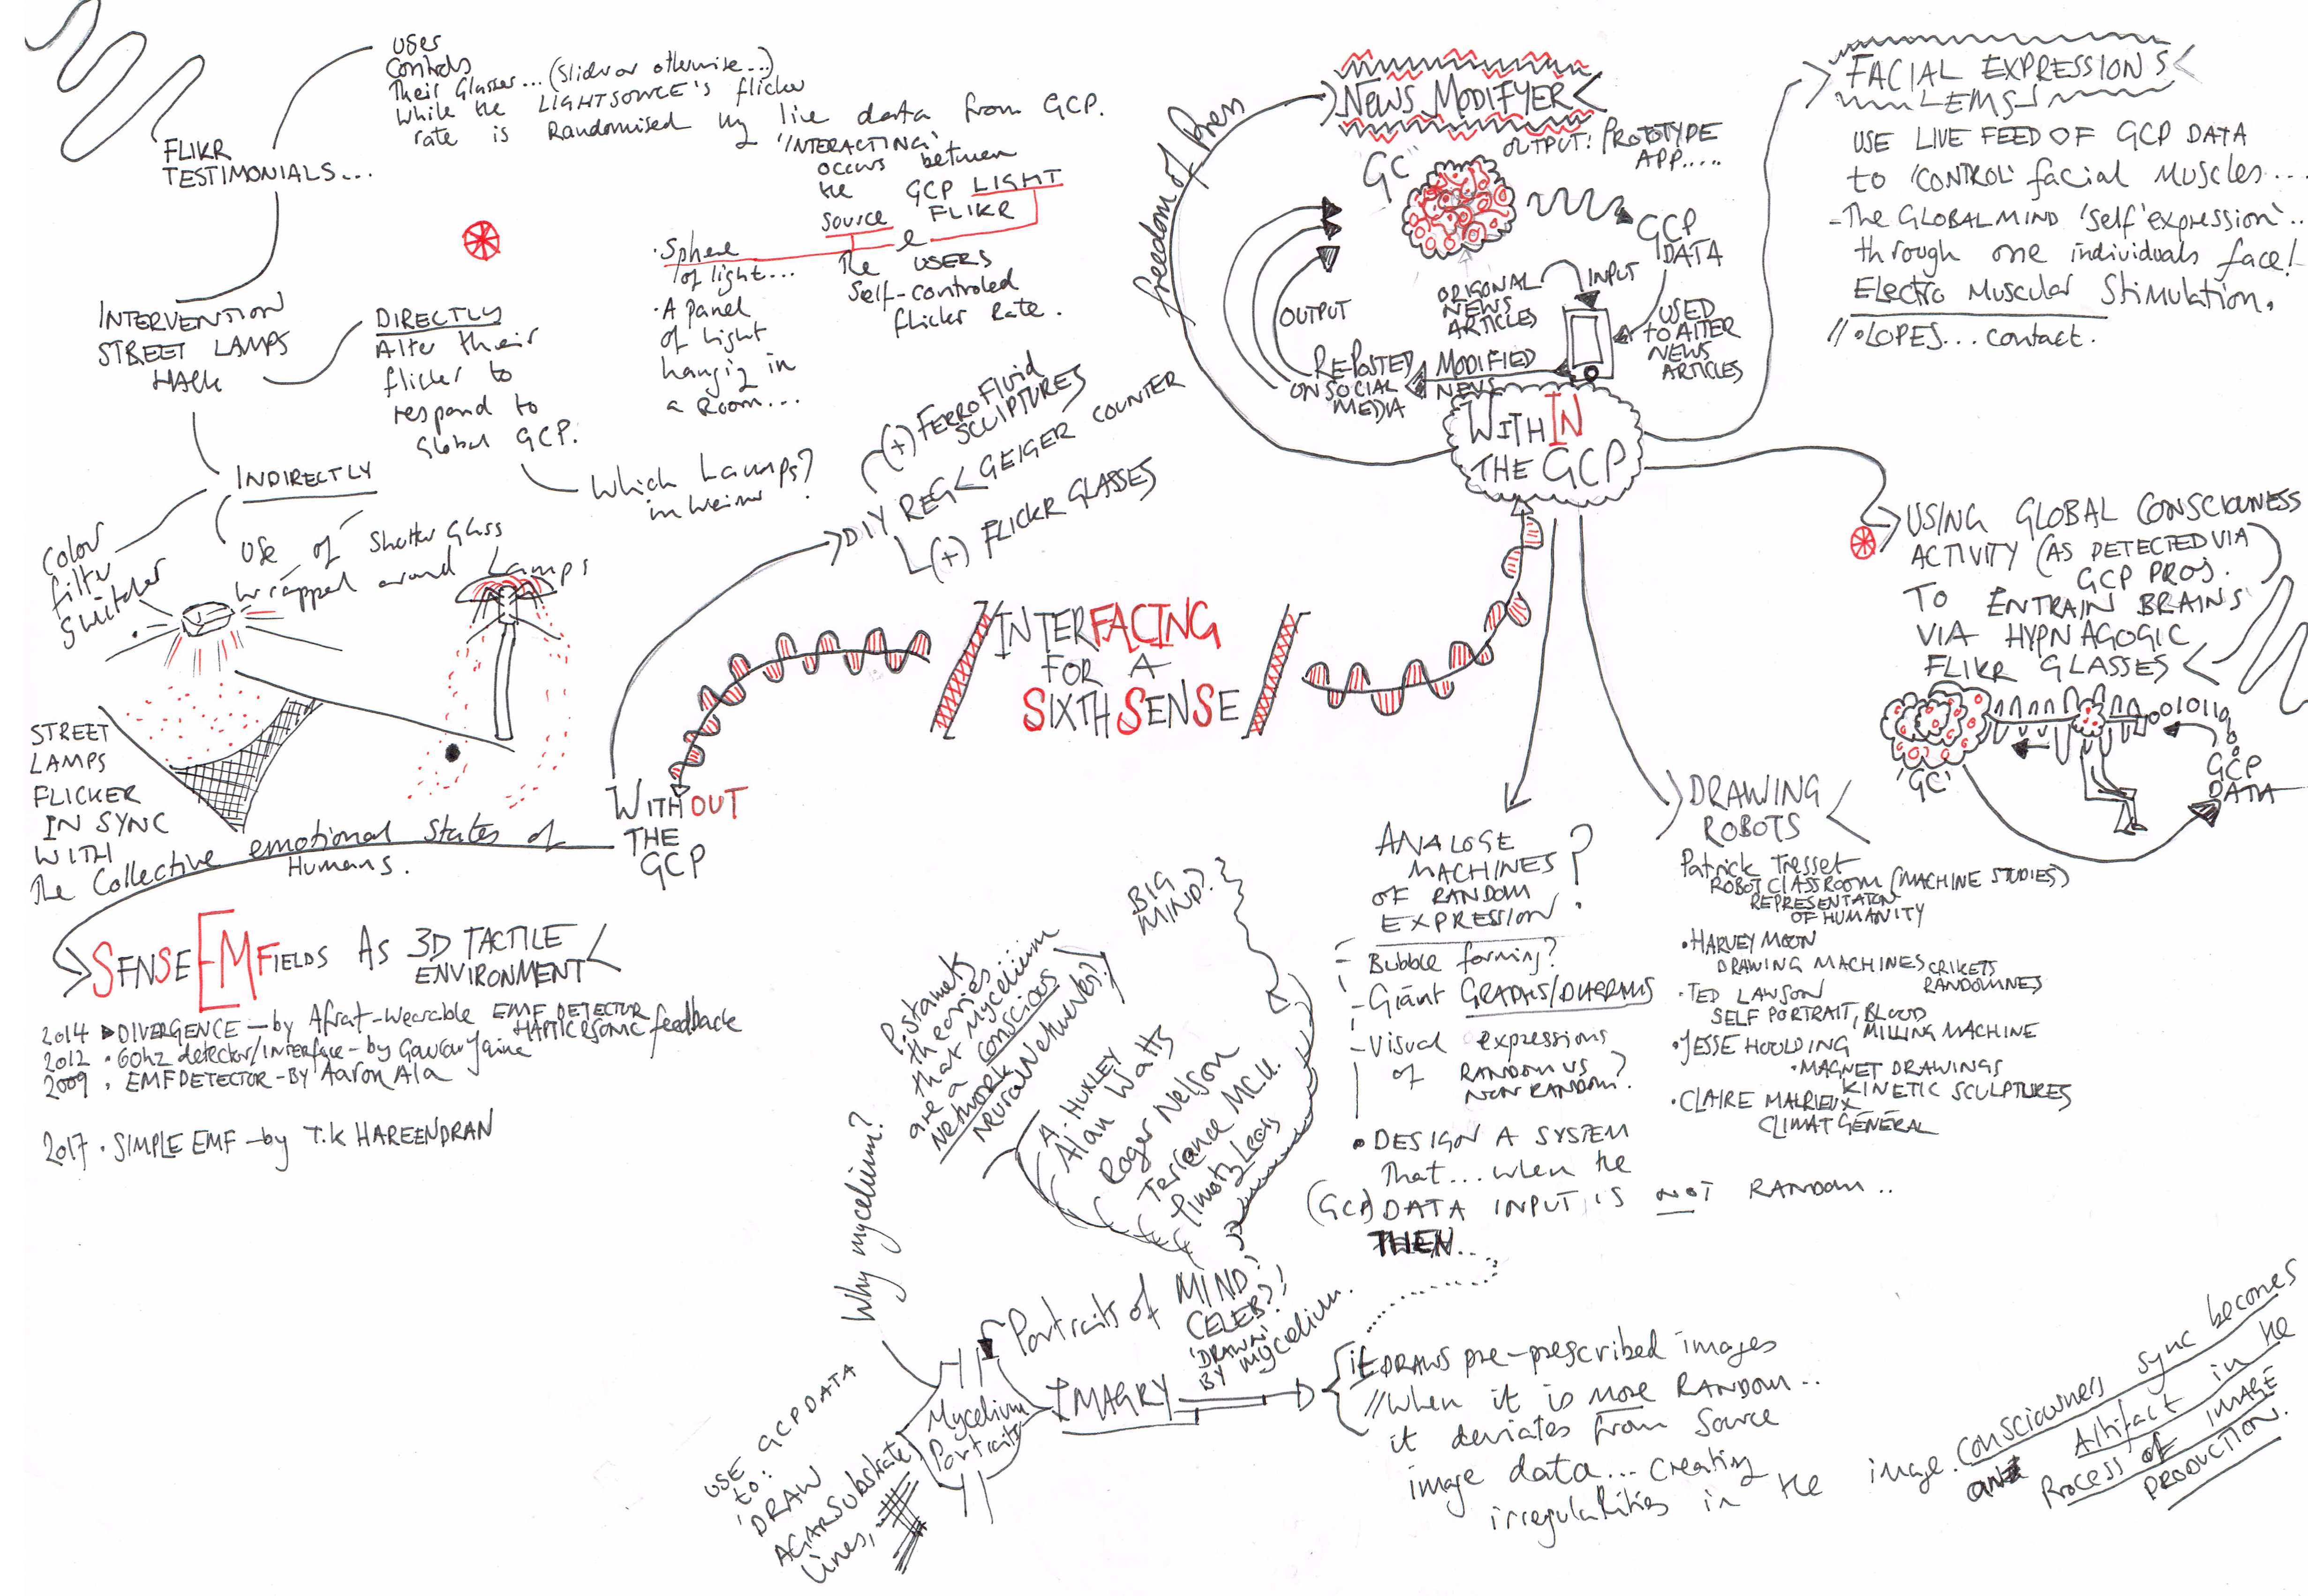 uses
Controls
Their Glasses... (Slider or otherwise...)
While the LIGHTSOURCE'S flicker
rate is Randomised by live data from GCP.
FLIKR
TESTIMONIALS...
'INTERACTING'
occurs between
the GCP LIGHT
Source FLIKR
e
The USERS
Self-controled
flicker Rate.
• Sphere
of light...
• A panel
of light
hanging in
a Room...
INTERVENTION
STREET LAMPS
HACK
DIRECTLY
Alter their
flicker to
respond to
Global GCP.
Which Lamps?
in Weimar
INDIRECTLY
Color
filter
Switcher
USE of Shutter Glass
wrapped around Lamps
STREET
LAMPS
FLICKER
IN SYNC
WITH
The Collective emotional States of
Humans.
WITHOUT
THE
GCP
DIY REG < GEIGER COUNTER
(+) FERROFLUID
SCULPTURES
(+) FLICKR GLASSES
SENSE EMFIELDS AS 3D TACTILE
ENVIRONMENT
2014 DIVERGENCE - by Afrat - Wearable EMF DETECTOR
HAPTIC & SONIC feedback
2012 • 60hz detector/interface - by Gaurav Jaine
2009 • EMF DETECTOR - BY Aaron Ala
2017 • SIMPLE EMF - by T.K HAREENDRAN
INTERFACING
FOR A
SIXTH SENSE
freedom of Press
NEWS MODIFYER
OUTPUT: PROTOTYPE
APP.....
GC
GCP
DATA
ORIGONAL
NEWS
ARTICLES
INPUT
USED
TO ALTER
NEWS
ARTICLES
OUTPUT
REPOSTED
ON SOCIAL
MEDIA
MODIFIED
NEWS
WITHIN
THE GCP
FACIAL EXPRESSIONS
EMS
USE LIVE FEED OF GCP DATA
to 'CONTROL' facial Muscles...
- The GLOBAL MIND 'self' expression'..
through one individuals face!
Electro Muscular Stimulation.
// • LOPES... contact.
USING GLOBAL CONSCIOUNESS
ACTIVITY (AS DETECTED VIA
GCP PROJ.)
TO ENTRAIN BRAINS
VIA HYPNAGOGIC
FLIKR GLASSES
010110
'GC'
GCP
DATA
DRAWING
ROBOTS
Patrick Tresset
ROBOT CLASSROOM (MACHINE STUDIES)
REPRESENTATION
OF HUMANITY
• HARVEY MOON
DRAWING MACHINES CRIKETS
RANDOMNES
• TED LAWSON
SELF PORTRAIT, BLOOD
MILLING MACHINE
• JESSE HOULDING
• MAGNET DRAWINGS
KINETIC SCULPTURES
• CLAIRE MALRIEUX
CLIMAT GÉNÉRAL
ANALOGE
MACHINES
OF RANDOM
EXPRESSION?
- Bubble forming?
- Giant GRAPHS/DIAGRAMS
- Visual expressions
of RANDOM VS
NON RANDOM?
• DESIGN A SYSTEM
That... when the
(GCP) DATA INPUT IS NOT RANDOM..
THEN...
BIG
MIND?
Pistamets
theories...
that Mycelium
are a conscious
network
Neural Networks?
A. HUXLEY
Alan Watts
Roger Nelson
Terrance McK.
Timoty Leary
Why mycelium?
Portraits of MIND?
CELEB?!
'DRAWN'
BY mycelium.
Mycelium
Portraits
IMAGRY
USE GCP DATA
to:
'DRAW
AGAR Substrate
Lines,
it DRAWS pre-prescribed images
// When it is more RANDOM..
it deviates from Source
image data... creating
irregularities in the image.
Consciouness sync becomes
an Artifact in the
Process of IMAGE
PRODUCTION.